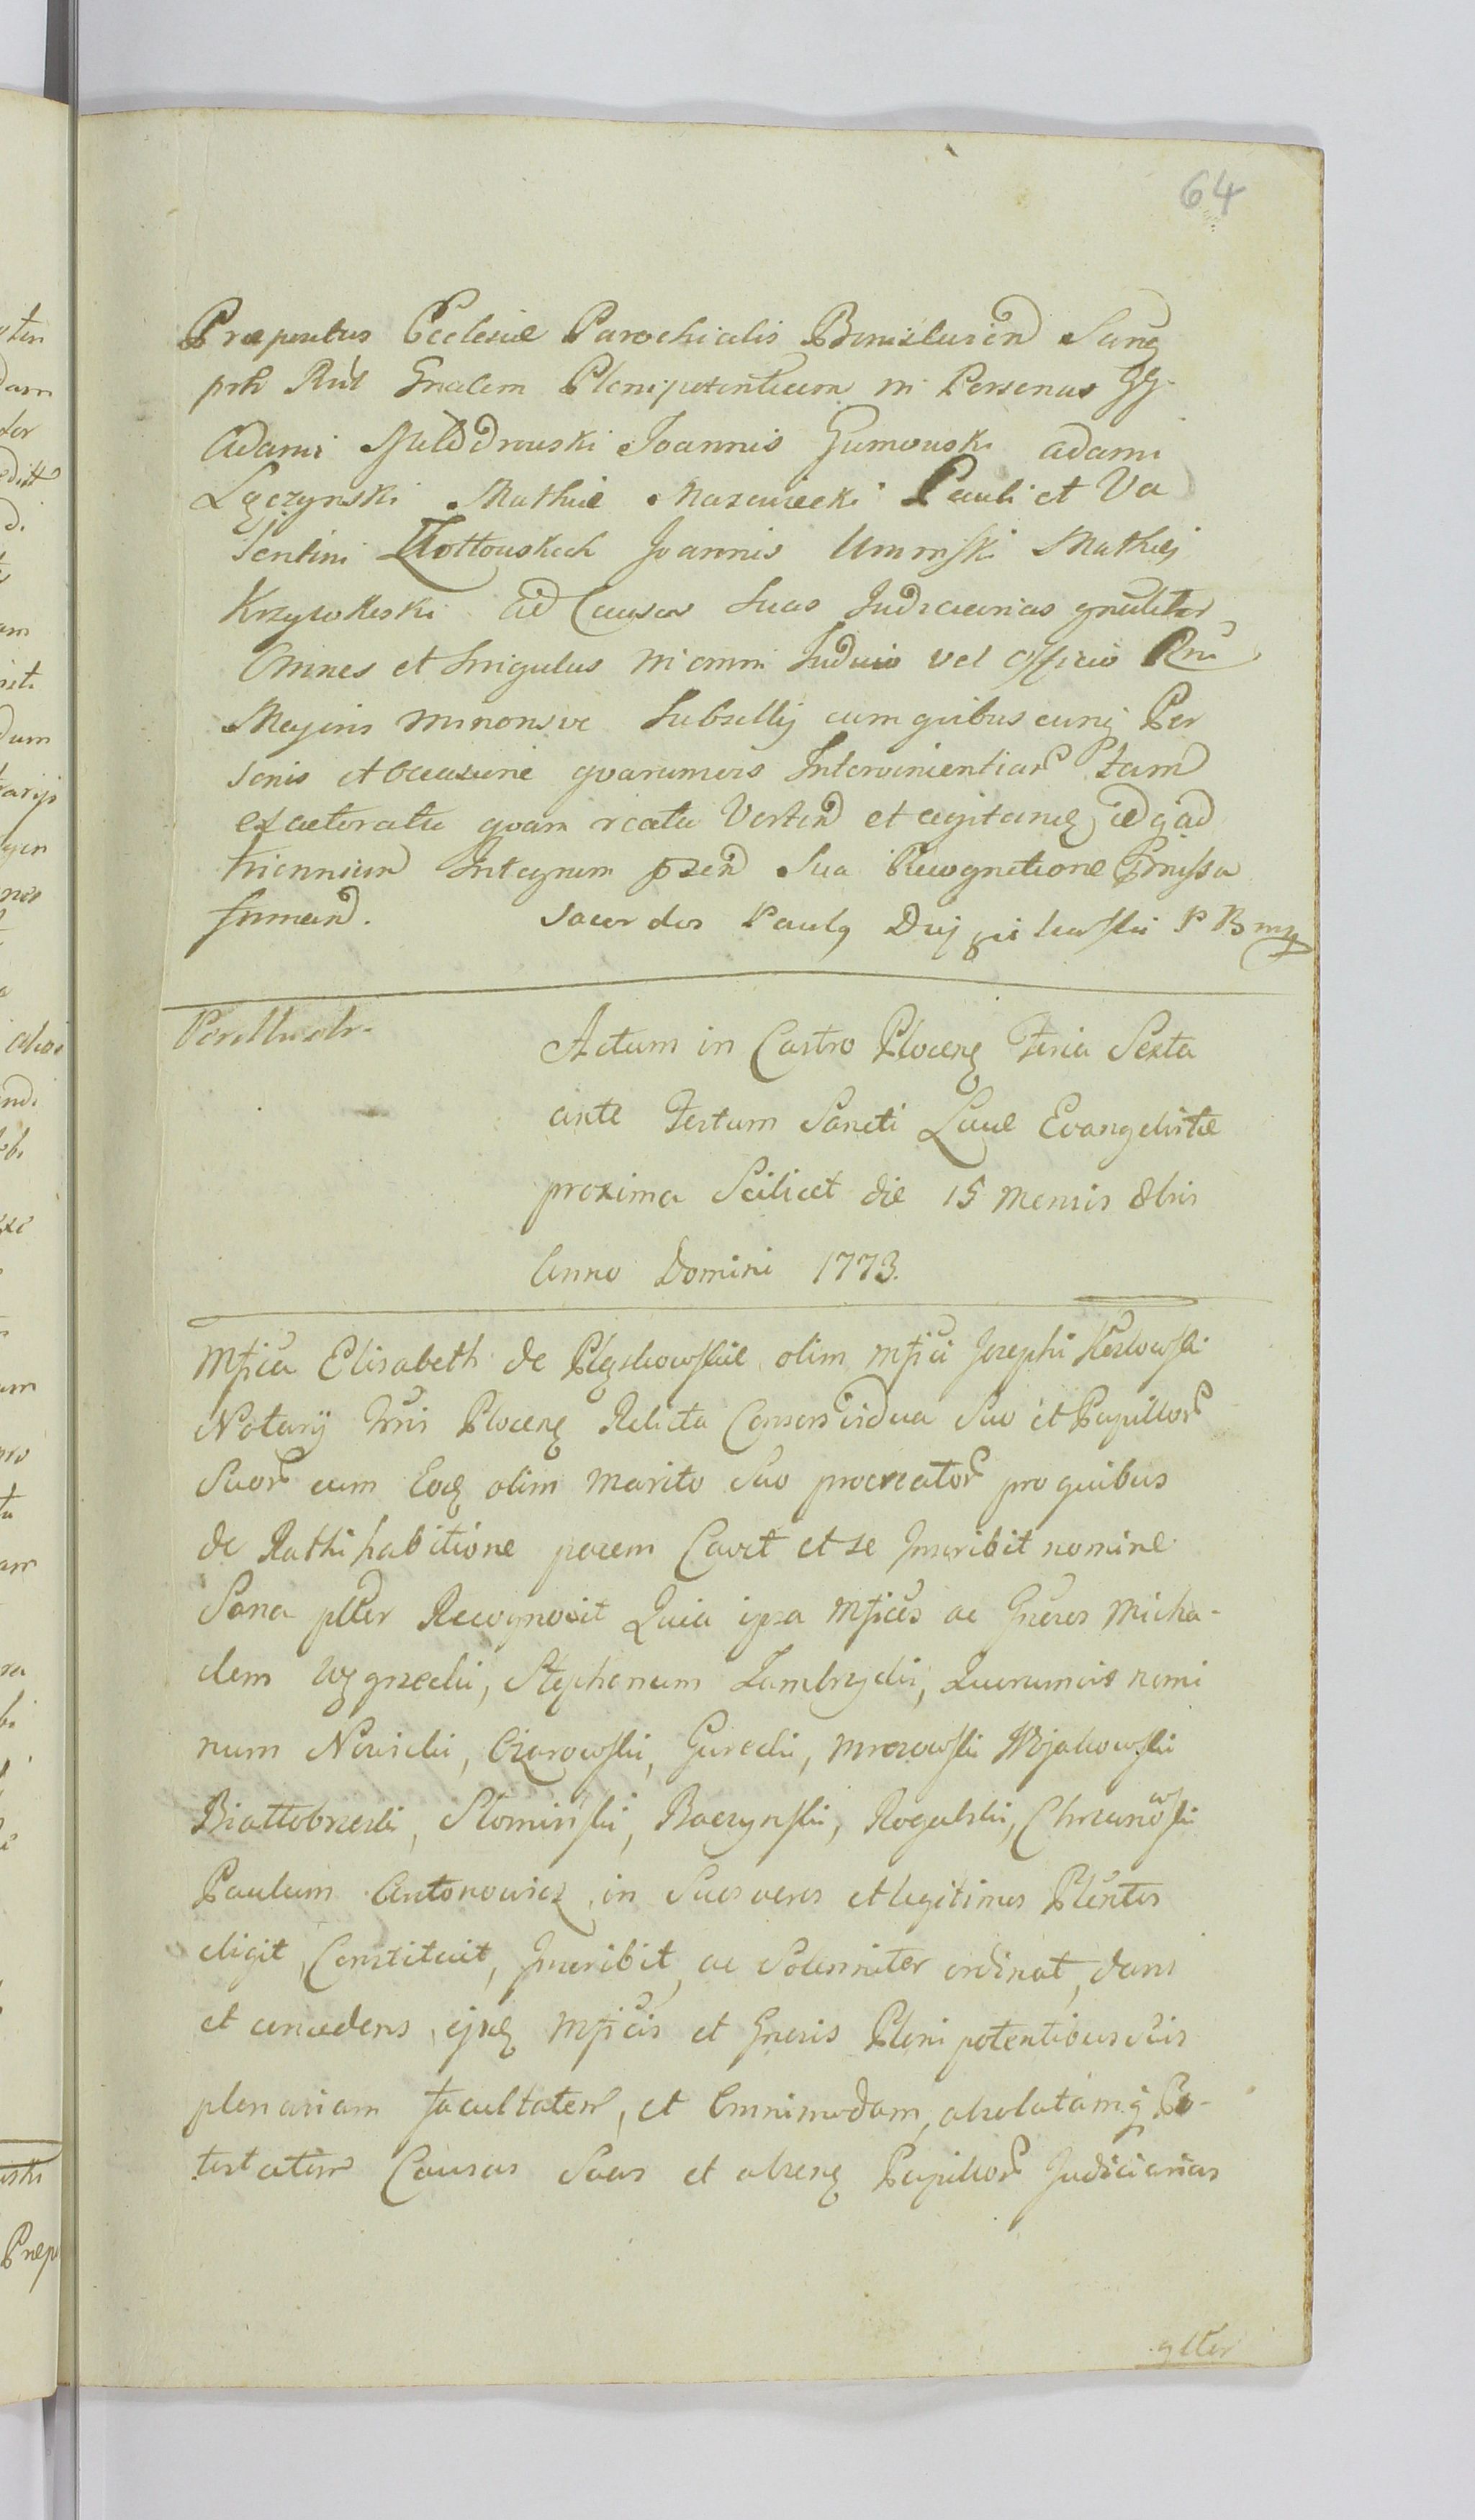 64
Præpositus Ecclesiæ Parochialis Bonislavien Sanq
pth Rūt Gnalem Plenipotentiam in Personas GG
Adami Joannis Gumowski Adami
Łączynski Mathiæ Mazowiecki Pauli et Va
lentini Złottowskich Joannis Uminski Mathiæ
Krzywkoski ad Causas Suas Judiciarias gnaliter
Omnes et Singulas in omni Judicio vel Officio Rni
Majoris minorisve Subsellij cum quibuscunq Per
sonis et occasione quarumvis Intervenientiar tam
ex actoratu quam reatu Verten et agitanq idq ad
triennium Integrum pzen Sua Recognitione Pmissa
firman. Sacerdos Paulq P B mp
Perillustr.
Actum in Castro Plocenq Feria Sexta
ante Festum Sancti Lucæ Evangelistæ
proxima Scilicet die 15 Mensis 8bris
Anno Domini 1773.
Mfica Elisabeth de Pląskowskie olim Mfici Josephi Kozłowski
Notarij Trris Plocenq Relicta Consors vidua Suo et Pupillor
Suor cum Eodq olim Marito Suo procreator pro quibus
de Rathihabitione pacem Cavet et se Inscribit nomine
Sana ptter Recognovit Quia ipsa Mficos ac Gnerosos Micha-
elem Węgrzecki, Stephanum Zambrzycki, Quorumvis nomi
num Nowicki, Ciżarowski, Gurecki, Mrozowski Wojakowski
Białłobrzeski, Słominski, Baczynski, Rogalski, Chrzanowski
Paulum Antonowicz in Suos veros et legitimos Plentes
eligit, Constituit, Inscribit, ac Solenniter ordinat, dans
et concedens, ejsdq Mficis et Gnosis Plenipotentibus Suis
plenariam facultatem, et Omnimodam, absolutamq Po-
testatem Causas Suas et absenq Pupillor Judiciarias
gtter